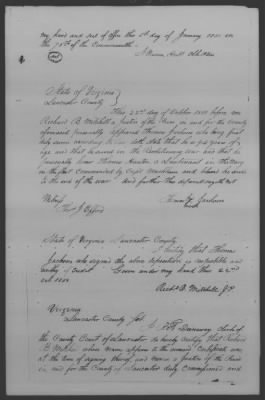 my hand and seal of office this 6th day of January 1851 in
the 75th of the Commonwealth.
State of Virginia
Lancaster County
This 22nd day of October 1850 before me
Richard B. Mitchell a Justice of the Peace in and for the County
aforesaid personally appeared Thomas Jackson who being first
duly sworn according to law doth state that he is years of
age and that he served in the Revolutionary war and that he
personally knew Thomas a Lieutenant in the Navy
in the fleet commanded by Capt and there he served
to the end of the war And further this deponent sayeth not
Thomas Jackson
State of Virginia Lancaster County
I certify that Thomas
Jackson who signed the above deposition is respectable and
worthy of credit Given under my hand this 22nd
Oct 1850
Richd B. Mitchell J.P.
Virginia
Lancaster County
I Clerk of the
County Court of Lancaster do hereby certify that Richard
B. Mitchell whose name appears to the annexed Certificate was
at the time of signing thereof, and now is a Justice of the Peace
in and for the County of Lancaster duly Commissioned and